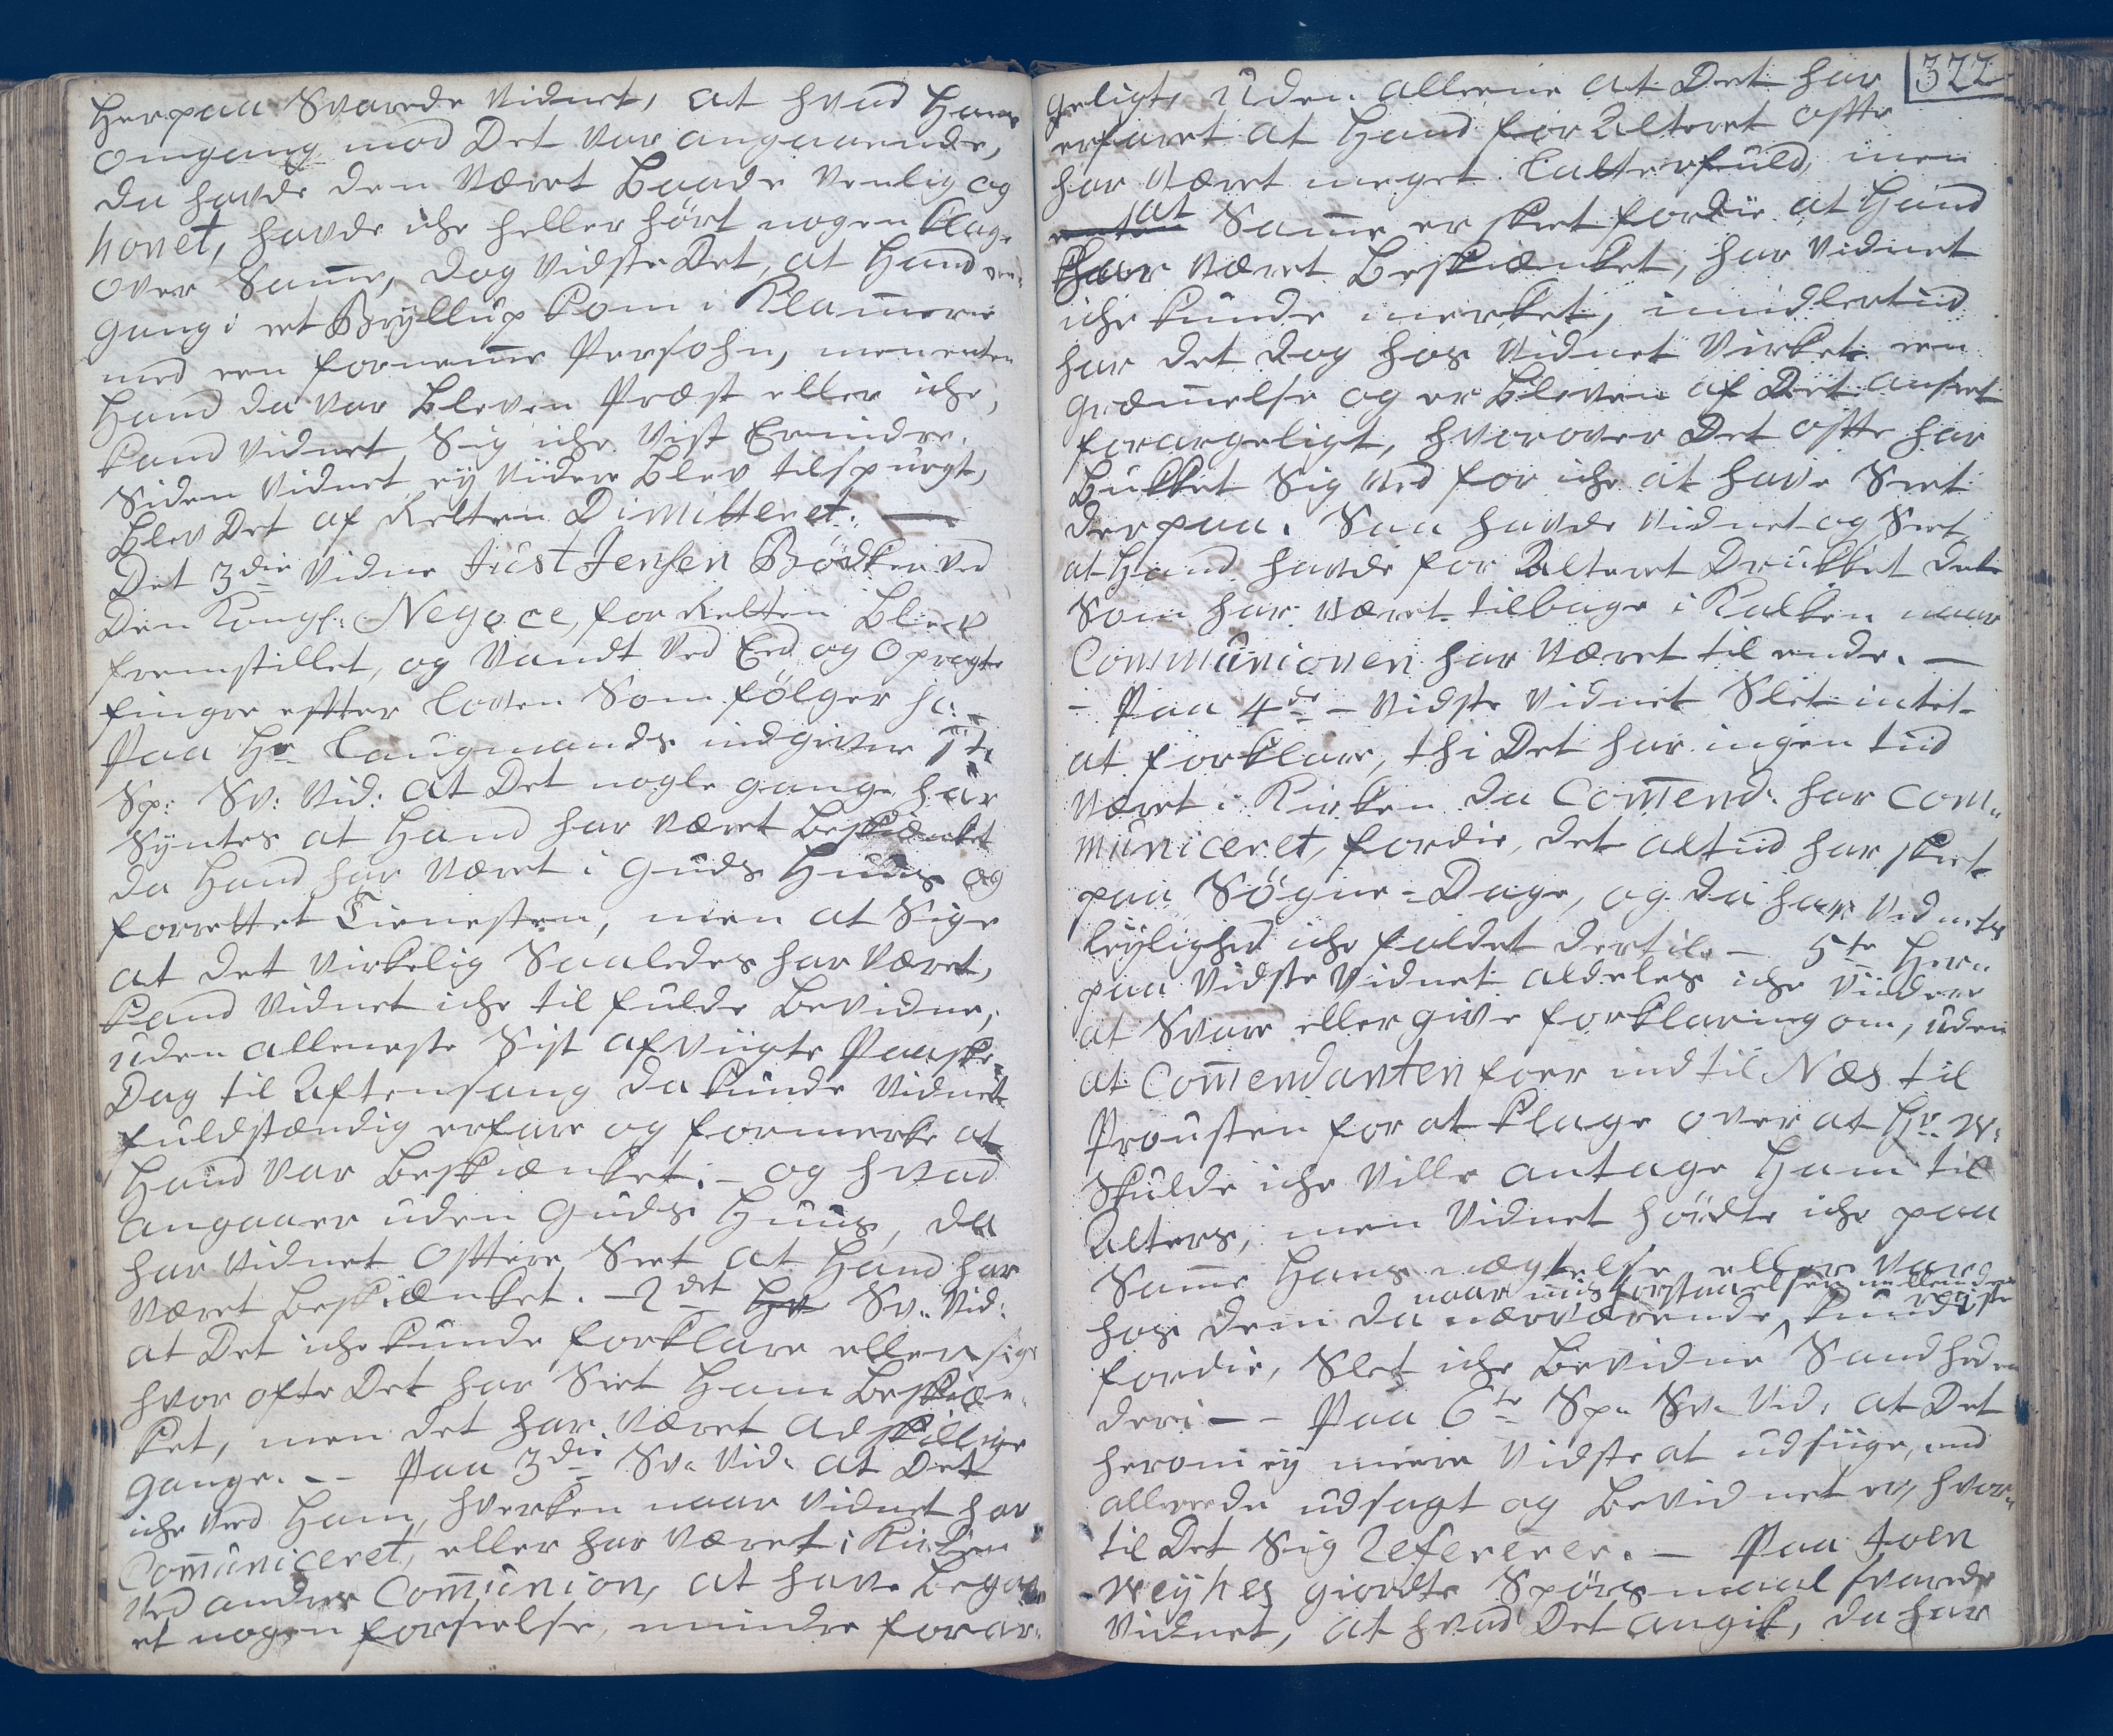 Herpaa Svarede Vidnet, at hvad Hans
omgang mod Det var angaaende,
da havde den været baade venlig og
honet, havde iche heller hørt nogen klage
over Samme, dog vidste Det, at Hand een
gang i et Bryllup kom i Klammerie
med een fornemme Persohn, men enten
Hand da var bleven Præst eller iche,
kand Vidnet Sig iche vist Erindre.
Siden Vidnet ey videre blev tilspurgt,
blev Det af Retten Dimitteret. —
Det 3die Vidne Just Jensen Bödker ved
Den Kongl: Negoce, for Retten blev
fremstillet, og vandt ved Eed og Opragte
fingre efter loven Som følger
Paa Hr Laugmands indgivne 1te
Sp: Sv: Vid: at Det nogle gange har
Syntes at Hand har været beskiænket
da Hand har været i Guds Huus og
forrettet Tienesten, men at Sige
at det virkelig Saaledes har været,
kand Vidnet iche til fulde bevidne,
uden alleneste Sist afviigte Paaske
Dag til Aftensang da kunde Vidnet
fuldstændig erfare og formerke at
Hand var beskiænket. – og hvad
angaaer uden Guds Huus, da
har Vidnet oftere Seet at Hand har
været beskiænket. – 2det Sv: Vid:
at Det iche kunde forklare eller sige
hvor ofte Det har Seet Ham beskiæn-
ket, men det har været adskillige
gange. – – Paa 3die Sv: Vid: at Det
iche ved Ham, hverken naar Vidnet har
Communiceret, eller har været i Kirken
ved andres Communion, at have begaa-
et nogen forseelse, mindre forar-
322
geligt, uden alleene at Det har
erfaret at Hand for Alteret ofte
har været meget latterfuld, men
at Samme er skeet fordie at Hand
har været beskiænket, har Vidnet
iche kunde merket, imidlertiid
har det dog hos Vidnet virket een
græmmelse og er bleven af Det anseet
forargeligt, hvorover Det ofte har
bukket Sig ned for iche at have Seet
derpaa. Saa havde Vidnet og Seet
at Hand havde for Alteret Drukket det
Som har været tilbage i Kalken naar
Communionen har været til ende. —
– Paa 4de – Vidste Vidnet Slet intet
at forklare, thi Det har ingen tiid
været i Kirken da Commend: har Com-
municeret, fordie, det altiid har skeet
paa Søgne-Dage, og da har Vidnets
leylighed iche faldet dertil. — 5te Her-
paa vidste Vidnet aldeles iche viidere
at Svare eller give forklaring om, uden
at Commendanten foer ind til Næs til
Prousten for at klage over at Hr. W:
Skulde iche ville antage Ham til
Alters, men Vidnet hørdte iche paa
Samme Hans nægtelse eller var
naar misforstaaelsen mellem dem reiste
hos dem da nærværende, kunde
fordie, Slet iche bevidne Sandheden
deri – – Paa 6te Sp: Sv: Vid: at Det
herom ey meere vidste at udsiige, end
allereede udsagt og bevidnet er, hvor-
til Det Sig Refererer. – Paa Joen
Weyhes giordte Spörsmaal svarede
Vidnet, at hvad Det angik, da har